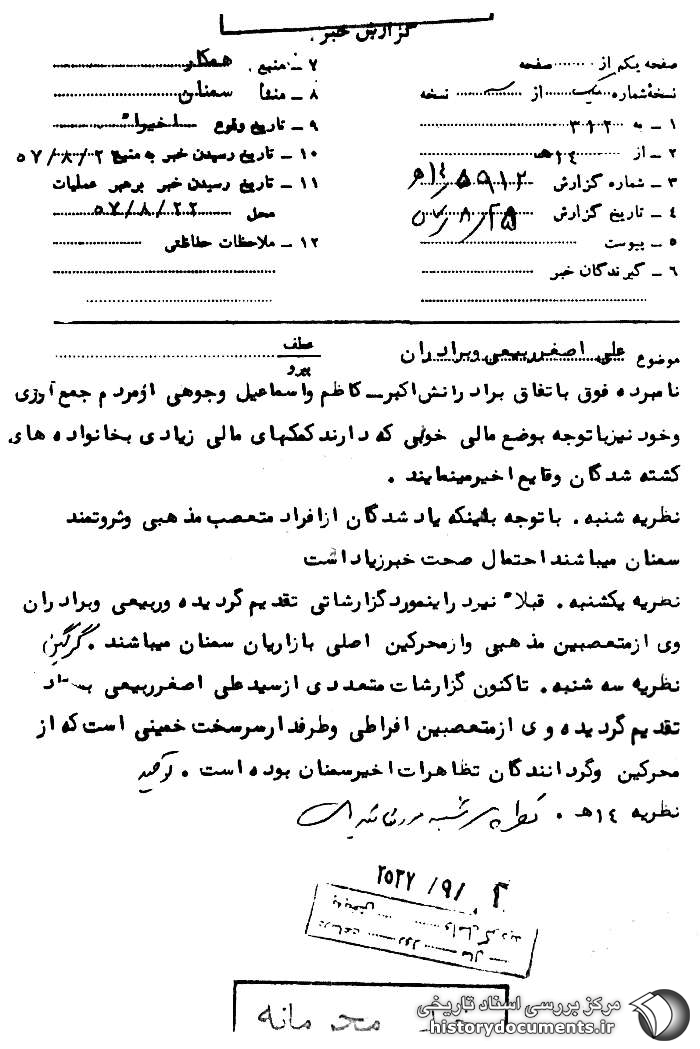 گزارش خبر
صفحه یکم از ........ صفحه
نسخه شماره یک از سه نسخه
۱ - به ۳۱۲
۲ - از ۱۴هـ
۳ - شماره گزارش ۱۴/۵۹۱۲هـ
۴ - تاریخ گزارش ۵۷/۸/۲۵
۵ - پیوست
۶ - گیرندگان خبر
۷ - منبع همکار
۸ - منشأ سمنان
۹ - تاریخ وقوع اخیراً
۱۰ - تاریخ رسیدن خبر به منبع ۵۷/۸/۲
۱۱ - تاریخ رسیدن خبر برهبر عملیات
محل ۵۷/۸/۲۲
۱۲ - ملاحظات حفاظتی
موضوع علی اصغر ربیعی وبرادران
عطف
پیرو
نامبرده فوق باتفاق برادرانش اکبر - کاظم واسماعیل وجوهی ازمردم جمع آوری
وخود نیزباتوجه بوضع مالی خوبی که دارند کمکهای مالی زیادی بخانواده های
کشته شدگان وقایع اخیرمینمایند .
نظریه شنبه . با توجه باینکه یاد شدگان ازافراد متعصب مذهبی وثروتمند
سمنان میباشند احتمال صحت خبرزیاد است
نظریه یکشنبه . قبلاً نیزد راینمورد گزارشاتی تقدیم گردیده وربیعی وبرادران
وی ازمتعصبین مذهبی وازمحرکین اصلی بازاریان سمنان میباشند .
نظریه سه شنبه . تاکنون گزارشات متعددی ازسیدعلی اصغرربیعی
تقدیم گردیده وی ازمتعصبین افراطی وطرفدارسرسخت خمینی است که از
محرکین وگردانندگان تظاهرات اخیرسمنان بوده است .
نظریه ۱۴هـ . نظریه سه شنبه مورد تائید است
۲۵۳۷/۹/۴
محرمانه
مرکز بررسی اسناد تاریخی
historydocuments.ir